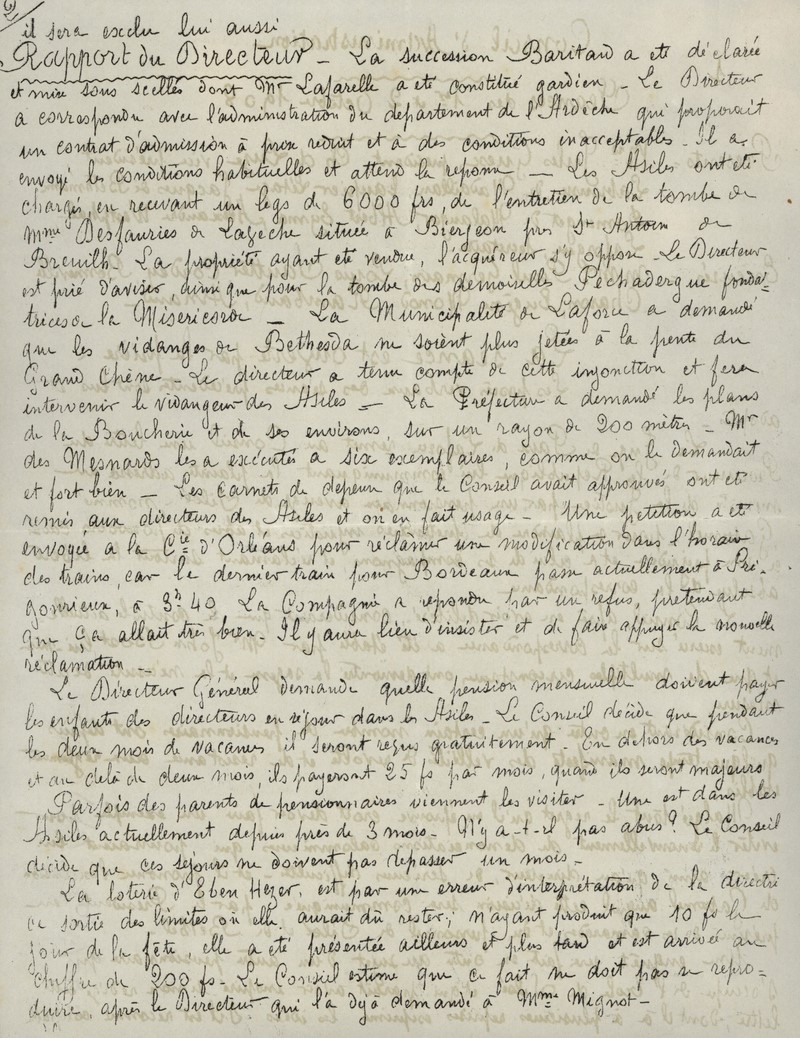 il sera exclu lui aussi
Rapport du Directeur _ La succession Baritaud a eté déclarée
et mise sous scellés dont Mr Lafarelle a eté constitué gardien _ Le Directeur
a correspondu avec l'administration du departement de l'Ardèche qui proposait
un contrat d'admission à prix reduit et à des conditions inacceptables. Il a
envoyé les conditions habituelles et attend la reponse _ Les Asiles ont eté
chargés, en recevant un legs de 6000 frs, de l'entretien de la tombe de
Mme Desfauries de située à près St Antoine de
Breuilh. La propriété ayant eté vendue, l'acquéreur s'y oppose _ Le Directeur
est prié d'aviser, ainsi que pour la tombe des demoiselles Pechadergue fonda=
trices de la Misericorde _ La Municipalité de Laforce a demandé
que les vidanges de Bethesda ne soient plus jetées à la pente du
Grand Chêne _ Le directeur a tenu compte de cette injonction et fera
intervenir le vidangeur des Asiles = La Préfecture a demandé les plans
de la Boucherie et de ses environs, sur un rayon de 200 mètres _ Mr
des Mesnards les a exécutés à six exemplaires, comme on le demandait
et fort bien _ Les carnets de depense que le Conseil avait approuvés ont eté
remis aux directeurs des Asiles et on en fait usage _ Une petition a eté
envoyée a la Cie d'Orléans pour réclamer une modification dans l'horaire
des trains, car le dernier train pour Bordeaux passe actuellement à Pri-
gonrieux, à 3h 40 La Compagnie a repondu par un refus, pretendant
que ça allait très bien. Il y aura lieu d'insister et de faire appuyer la nouvelle
réclamation _
Le Directeur Général demande quelle pension mensuelle doivent payer
les enfants des directeurs en sejour dans les Asiles _ Le Conseil décide que pendant
les deux mois de vacances il seront reçus gratuitement. En dehors des vacances
et au delà de deux mois, ils payeront 25 fs par mois, quand ils seront majeurs
Parfois des parents de pensionnaires viennent les visiter _ Une est dans les
Asiles actuellement depuis près de 3 mois _ N'y a-t-il pas abus? Le Conseil
décide que ces sejours ne doivent pas depasser un mois _
La loterie d'Eben Hezer, est par une erreur d'interprétation de la directri
ce sortie des limites où elle aurait dû rester; n'ayant produit que 10 fs le
jour de la fête, elle a eté présentée ailleurs et plus tard et est arrivée au
chiffre de 200 fs _ Le Conseil estime que ce fait ne doit pas se repro=
duire, après le Directeur qui l'a déjà demandé à Mme Mignot _